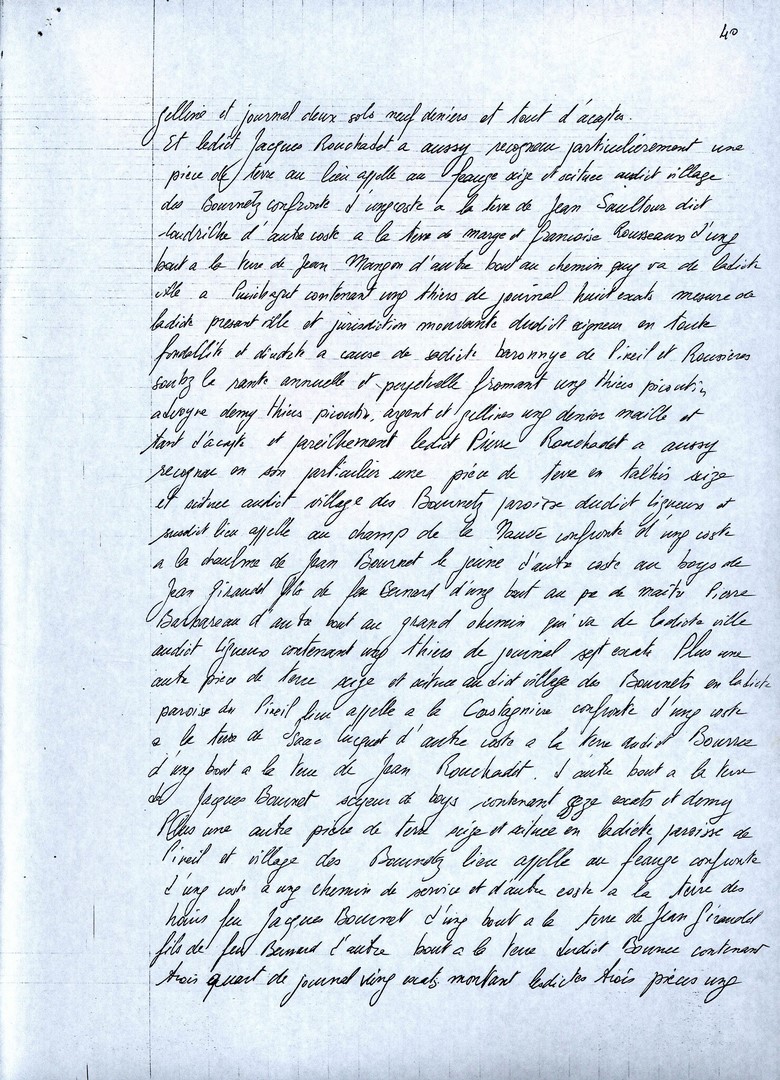 40
gelline et journal deux sols neuf deniers et tout d'acaptes.
Et ledict Jacques Rouchadet a aussy recogneu particulierement une
pièce de terre au lieu appelle au feauge size et scituee audict village
des Bournetz confronte d'ung coste a la terre de Jean Saultour dict
d'autre coste a la terre de marge et francoise Rousseaux d'ung
bout a la terre de Jean Mangon d'autre bout au chemin quy va de ladicte
ville a contenant ung thiers de journal huit exats mesure de
ladicte presant ville et jurisdiction mouvante dudict seigneur en toute
fondallité et directe a cause de sadicte baronnye de Pireil et Roussieres
soubz la rante annuelle et perpetuelle fromant ung thiers picoutin
advoyne demy thiers picoutin, argent et gellines ung denier maille et
tant d'acapte et pareilhement ledict Pierre Rouchadet a aussy
recogneu en son particulier une pièce de terre en talhis size
et scituee audict village des Bournetz paroisse dudict Ligueux et
susdict lieu appelle au champ de la Nauve confronte d'ung coste
a la chaulme de Jean Bournet le jeune d'autre coste au boys de
Jean Giraudel fils de feu Bernard d'ung bout au pe de maitre Pierre
Barbareau d'autre bout au grand chemin qui va de ladicte ville
audict Ligueux contenant ung thiers de journal sept exats Plus une
autre pièce de terre size et scituee audict village des Bournets en ladicte
paroise du Pireil lieu appelle a la Castagniere confronte d'ung coste
a la terre de Isaac d'autre coste a la terre dudict Bournet
d'ung bout a la terre de Jean Rouchadet. d'autre bout a la terre
de Jacques Bournet seyeur de boys contenant seze exats et demy
Plus une autre pièce de terre size et scituee en ladicte paroisse de
Pireil et village des Bournetz lieu appelle au feauge confronte
d'ung coste a ung chemin de service et d'autre coste a la terre des
hoirs feu Jacques Bournet d'ung bout a la terre de Jean Giraudel
fils de feu Bernard d'autre bout a la terre dudict Bournet contenant
trois quart de journal ving exats montant lesdictes trois pièces ung